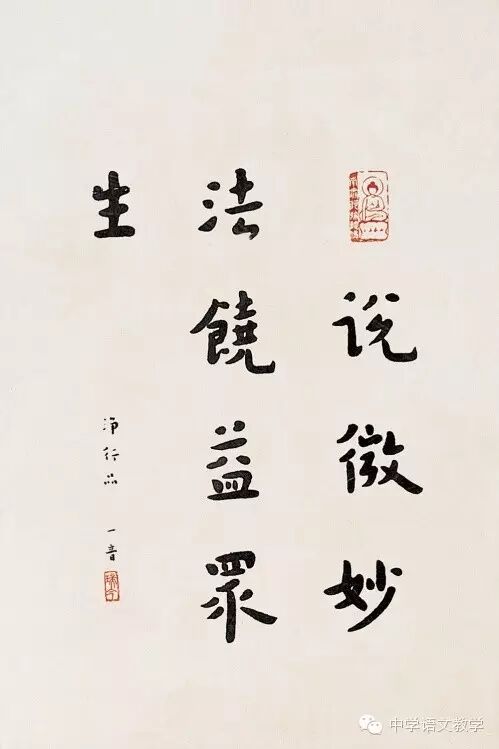 说微妙
法饒益眾
生
净行品 一音
中学语文教学